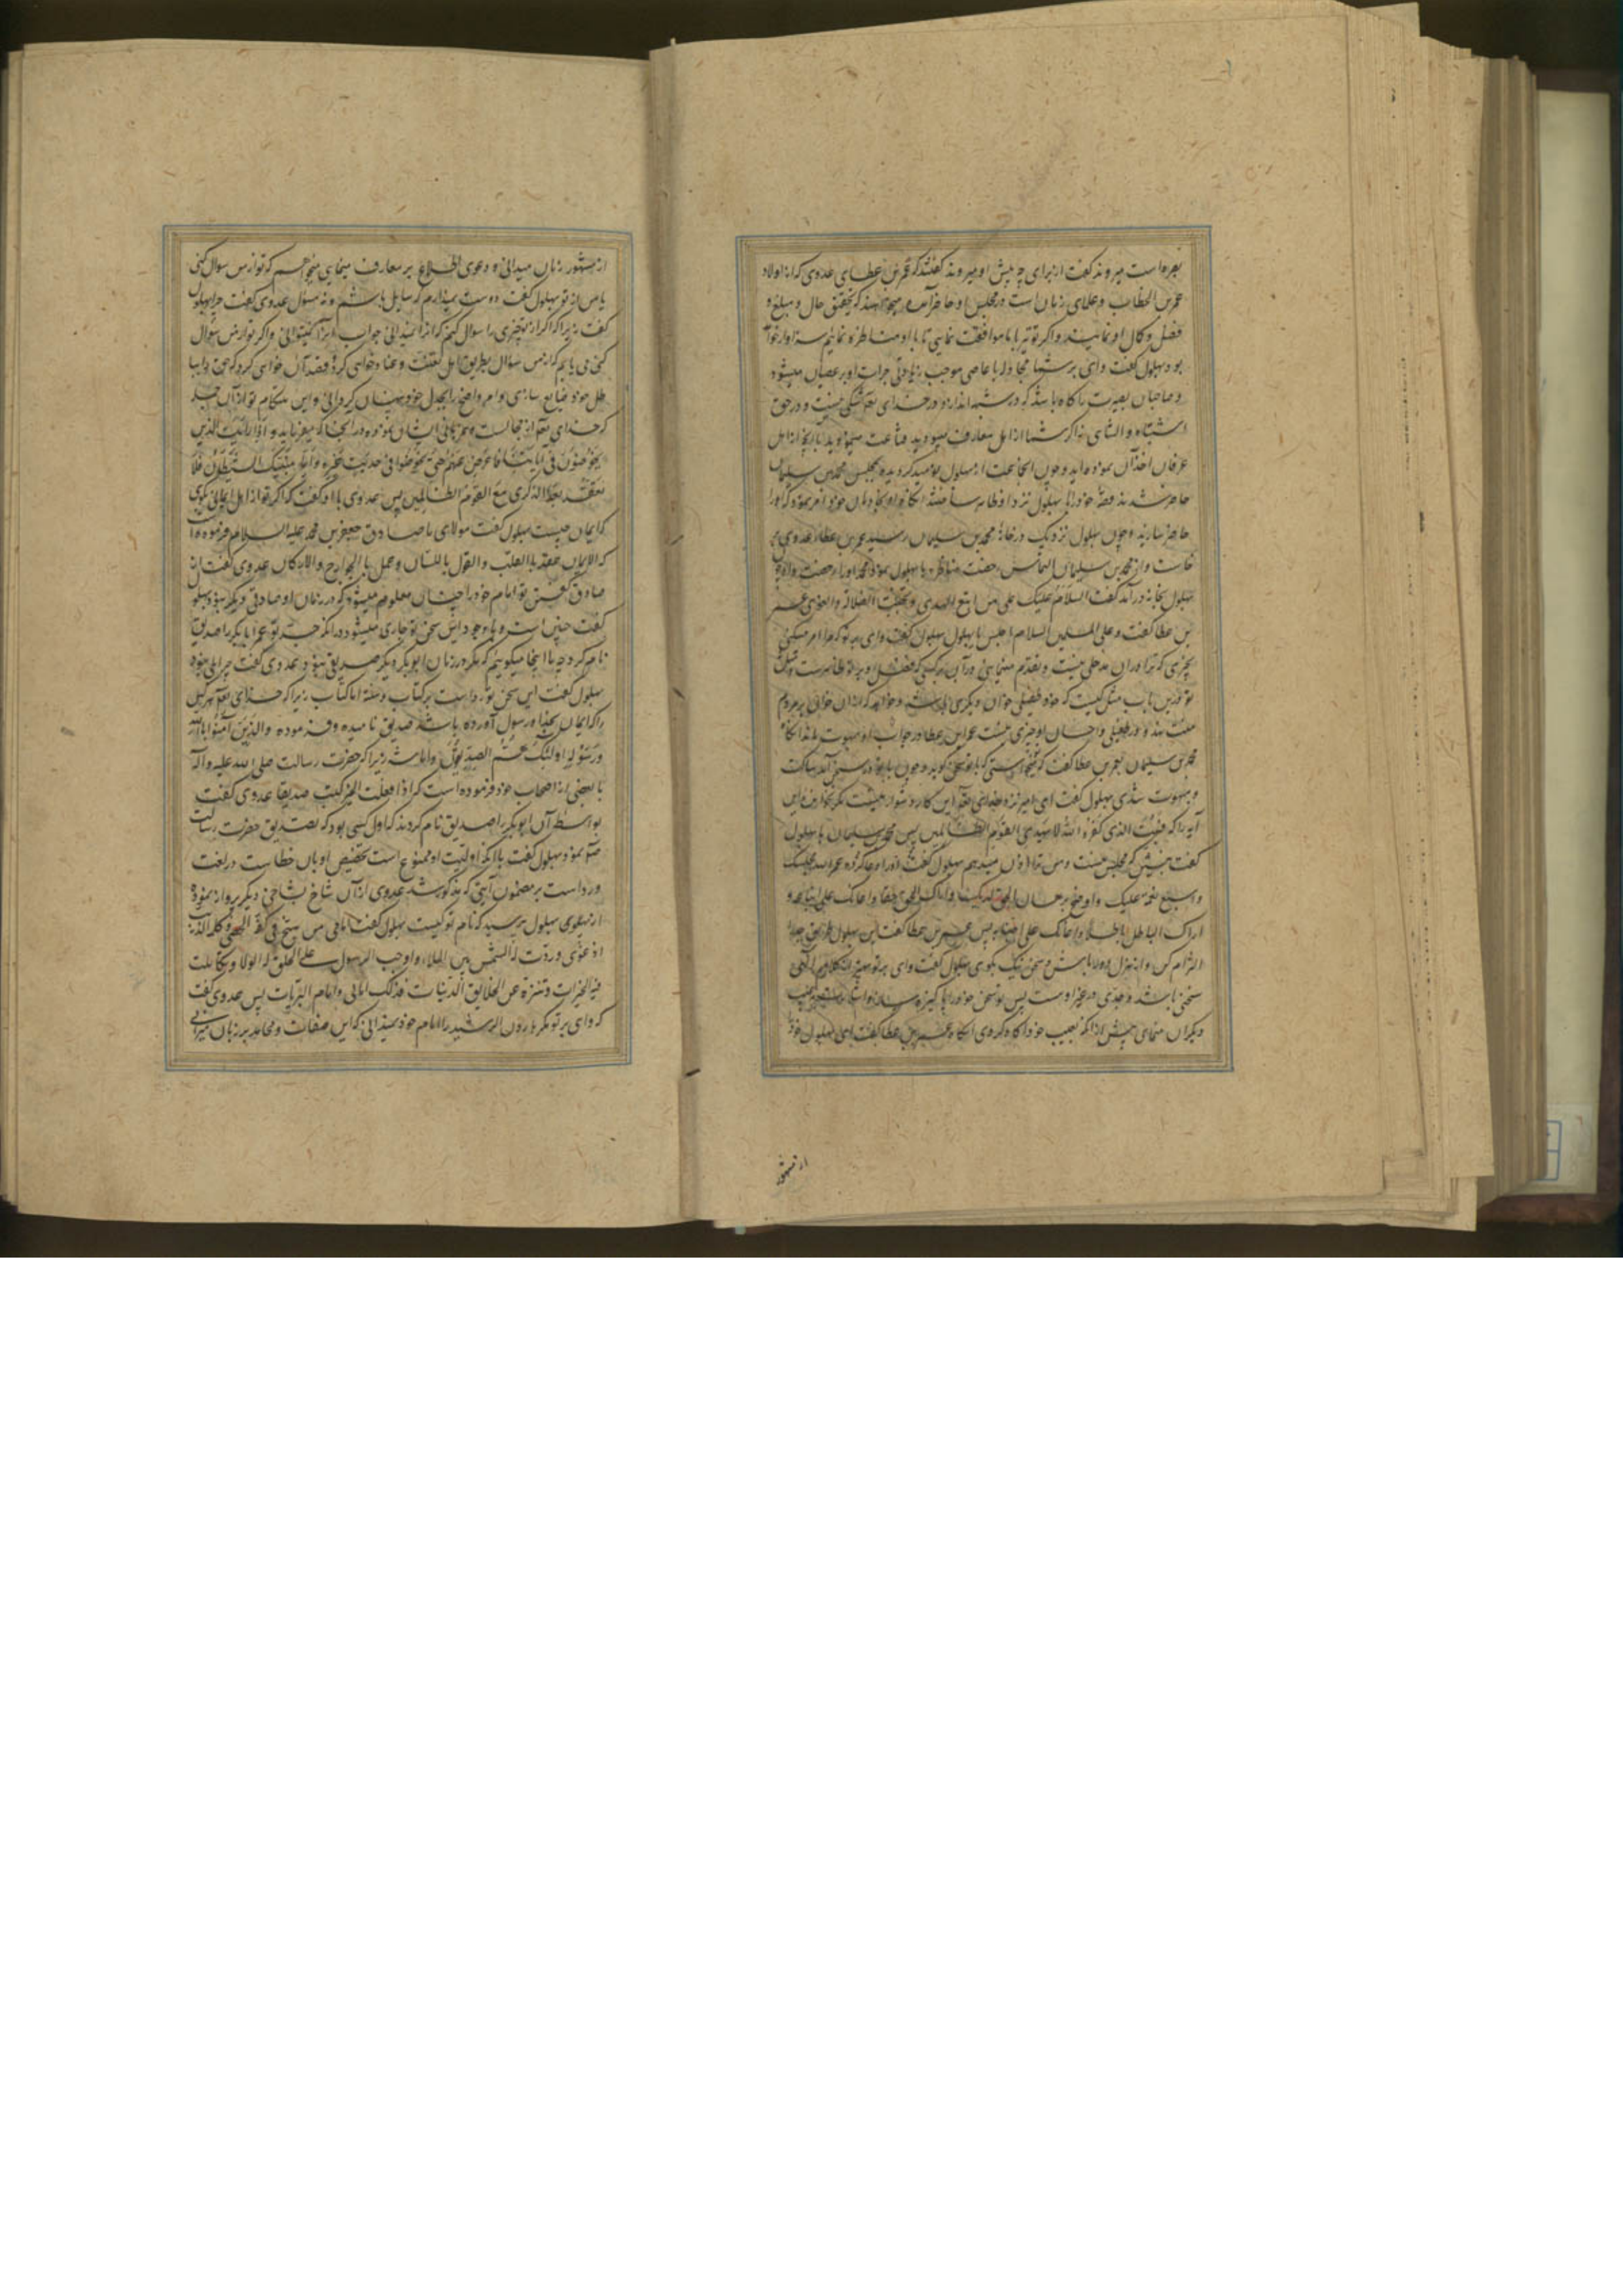 بصره است میروند گفت از برای چه پیش او میروند گفتند که عمر بن عطای عدوی که از اولاد
عمر بن الخطاب و علمای زمان است در مجلس او حاضر آمده میخواهند که تحقیق حال و مبلغ و
فضل و کمال او نمایند و اگر تو نیز با ما موافقت نمایی تا با او مناظره نمائیم سزاوار خواهد
بود بهلول گفت وای بر شما مجادله با عاصی موجب زیادتی جرات او بر عصیان میشود
و صاحبان بصیرت را گاه باشد که در شبه اندازد و در خدای تعالی شکی نیست و در حق
اشتباه و التباسی نه اگر شما از اهل معارف میبودید قناعت مینمودید بآنچه از اهل
عرفان اخذ آن نموده اید و چون آنجماعت از بهلول نومید گردیده بمجلس محمد بن سلیمان
حاضر شدند قصه خود را با بهلول نزد او ظاهر ساختند آنگاه او بخادمان خود امر نمود که او را
حاضر سازند و چون بهلول نزدیک در خانه محمد بن سلیمان رسید عمر بن عطاء عدوی بر
خاست و از محمد بن سلیمان التماس رخصت مناظره با بهلول نمود و محمد او را رخصت داد و چون
بهلول بخانه در آمد گفت السلام علیک علی من اتبع الهدی و تجنب الضلالة و الغوی عمر
بن عطا گفت و علی المسلمین السلام اجلس یا بهلول بهلول گفت وای بر تو که مرا امر میکنی
بچیزی که ترا در آن مدخلی نیست و تقدم مینمایی در آن بر کسی که فضل او بر تو ظاهرست و مثل
تو درین باب مثل کسیست که خود طفیلی خوان دیگری باشد و خواهد که از آن خوان بر مردم
منت نهد و در طفیلی و احسان او چیزی نیست عمر ابن عطا در جواب او مبهوت بماند آنگاه
محمد بن سلیمان بعمر بن عطا گفت که میخواستی که با تو سخن گوید و چون با تو در سخن آمد ساکت
و مبهوت شدی بهلول گفت ای امیر نزد خدای تعالی این کار دشوار نیست مگر نخوانده این
آیه را که فبهت الذی کفر و الله لا یهدی القوم الظالمین پس محمد بن سلیمان با بهلول
گفت بنشین که مجلس منست و من ترا اذن میدهم بهلول گفت او را دعا کرده عمر الله مجلسک
و اسبغ نعمه علیک و اوضح برهان الحق لدیک و اراک الحق حقا و اعانک علی اتباعه و
اراک الباطل باطلا و اعانک علی اجتنابه پس عمر بن عطا گفت این بهلول طریق جد را
التزام کن و از هزل دور باش و سخن نیک بگوی بهلول گفت وای بر تو هیچ از کلام الهی
سخنی باشد و جدی در غیر او هست پس تو سخن خود را پاکیزه ساز و
دیگران منمای پیش از آنکه بعیب خود آگاه گردی آنگاه عمر بن عطا گفت ای بهلول خود
از مشهور
از مشهور زمان میدانی و دعوی اطلاع بر معارف مینمایی میخواهم که تو از من سوال کنی
یا من از تو بهلول گفت دوست نمیدارم که سایل باشم و نه مسؤل عدوی گفت چرا بهلول
گفت زیرا که اگر از تو چیزی را سوال کنم که آنرا نمیدانی جواب مرا نمیتوانی و اگر تو از من سوال
کنی می یابم که از من سؤال بطریق اهل تعنت و عناد خواهی کرد و قصد آن خواهی کرد که حق را ببا
طل خود ضایع سازی و امر واضح را بجدل خود پنهان گردانی و این هنگام تو از آن جمله
که خدای تعالی از مجالست و همزبانی ایشان نهی نموده در آنجا که میفرماید و اذا رأیت الذین
یخوضون فی آیاتنا فاعرض عنهم حتی یخوضوا فی حدیث غیره و اما ینسینک الشیطان فلا
تقعد بعد الذکری مع القوم الظالمین پس عدوی با او گفت که اگر تو از اهل ایمانی بگوی
که ایمان چیست بهلول گفت مولای ما صادق جعفر بن محمد علیه السلام فرموده است
که الایمان عقد بالقلب و القول باللسان و عمل بالجوارح و الارکان عدوی گفت از
صادق گفتن تو امام خود را چنان معلوم میشود که در زمان او صادق دیگر نبود بهلول
گفت چنین است و با وجود این سخن تو جاری میشود در آنکه جد تو عمر ابا بکر را صدیق
نام کرد چه ما اینجا میگوییم که مگر در زمان ابو بکر دیگر صدیق نبود عدوی گفت چرا نبود
بهلول گفت این سخن تو رد است بر کتاب و سنة اما کتاب زیرا که خدای تعالی هر کس
را که ایمان بخدا و رسول آورده باشد صدیق نامیده و فرموده و الذین آمنوا بالله
و رسوله اولئک هم الصدیقون و اما سنة زیرا که حضرت رسالت صلی الله علیه و آله
با بعضی از اصحاب خود فرموده است که اذا فعلت الخیر کنت صدیقا عدوی گفت
بواسطه آن ابو بکر را صدیق نام کردند که اول کسی بود که تصدیق حضرت رسالت
نمود بهلول گفت با آنکه اولیت او ممنوع است تخصیص او بآن خطاست در لغت
و رد است بر مضمون آیتی که مذکور شد عدوی از آن شاخ بشاخی دیگر پرواز نموده
از پهلوی بهلول پرسید که امام تو کیست بهلول گفت امامی من سبح فی کفه الحصی و کلمه الذئب
اذ عوی و ردت له الشمس بین الملاء و اوجب الرسول علی الخلق له الولا و تکاملت
فیه الخیرات و تنزه عن الخلایق الدنیات فذلک امامی و امام البریات پس عدوی گفت
که وای بر تو مگر هارون الرشید را امام خود نمیدانی که این صفات و محامد بر زبان میرانی